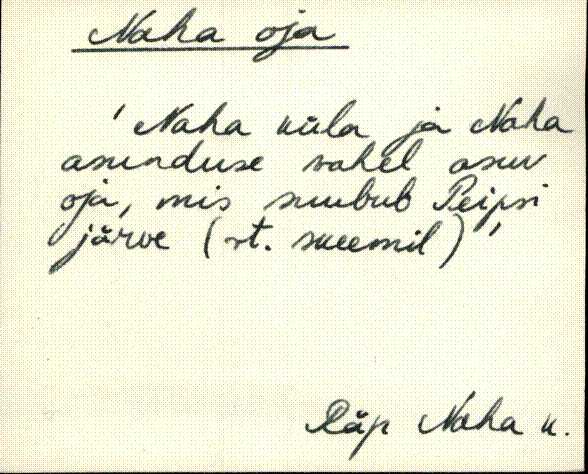 Naha oja
'Naha küla ja Naha
asunduse vahel asuv
oja, mis suubub Peipsi
järve (vt. skeemil)'
Räp Naha k.